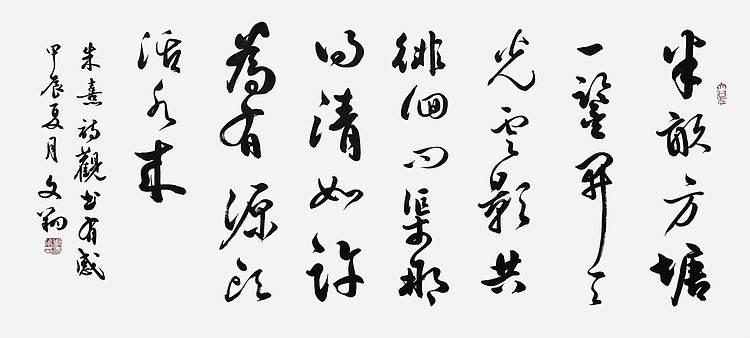 半畝方塘
一鑒開天
光雲影共
徘徊問渠那
得清如許
為有源頭
活水來
朱熹詩觀書有感
甲辰夏月文翔